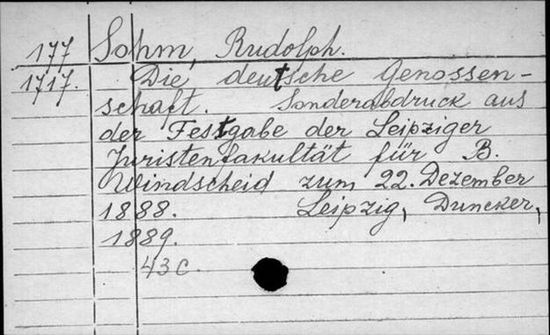 177 Sohm, Rudolph.
1717. Die deutsche Genossen-
schaft. Sonderabdruck aus
der Festgabe der Leipziger
Juristenfakultät für B.
Windscheid zum 22. Dezember
1888. Leipzig, Duncker,
1889.
43 C.